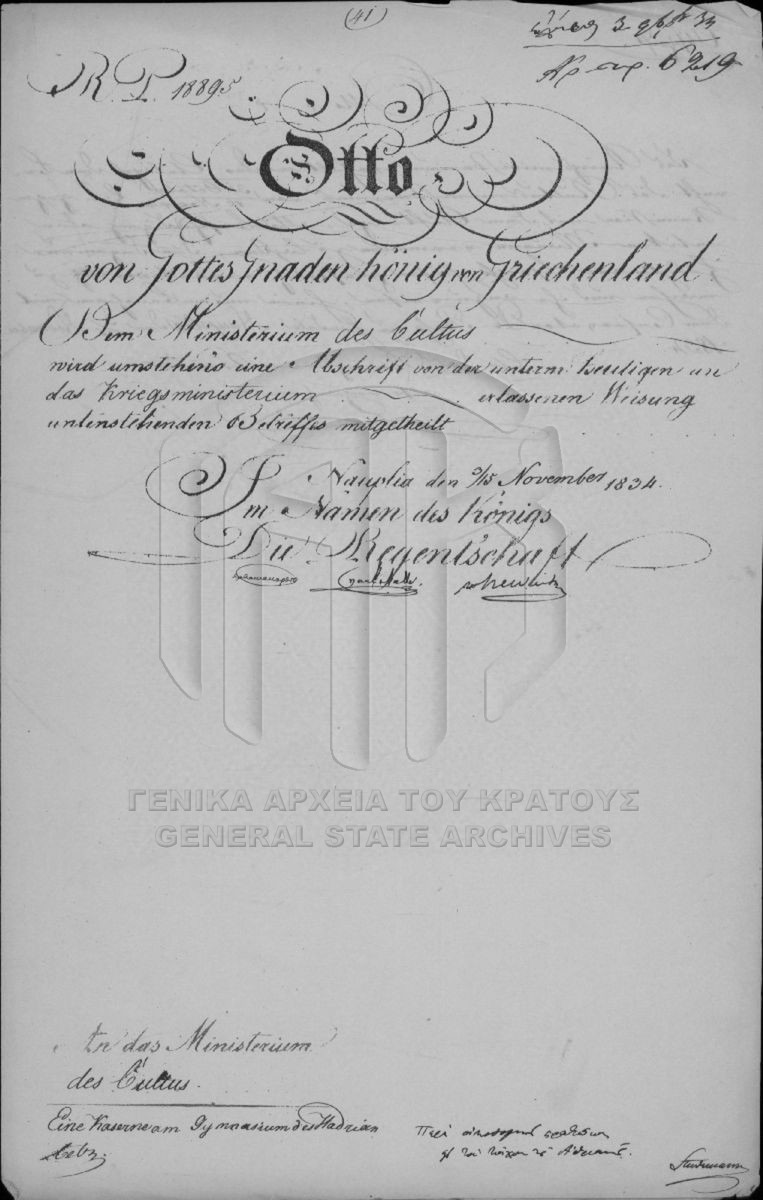 (41)
3 34
Αρ. πρ. 6219
R. P. 18895
Otto
von Gottes Gnaden König von Griechenland
Dem Ministerium des Cultus
wird umstehend eine Abschrift von der unterm heutigen an
das Kriegsministerium erlassenen Weisung
untenstehenden Betreffs mitgetheilt
Nauplia den 3/15 November 1834.
Im Namen des Königs
Die Regentschaft
ΓΕΝΙΚΑ ΑΡΧΕΙΑ ΤΟΥ ΚΡΑΤΟΥΣ
GENERAL STATE ARCHIVES
An das Ministerium
des Cultus.
Eine Kaserne am Gymnasium des Hadrian
betr.
Περὶ